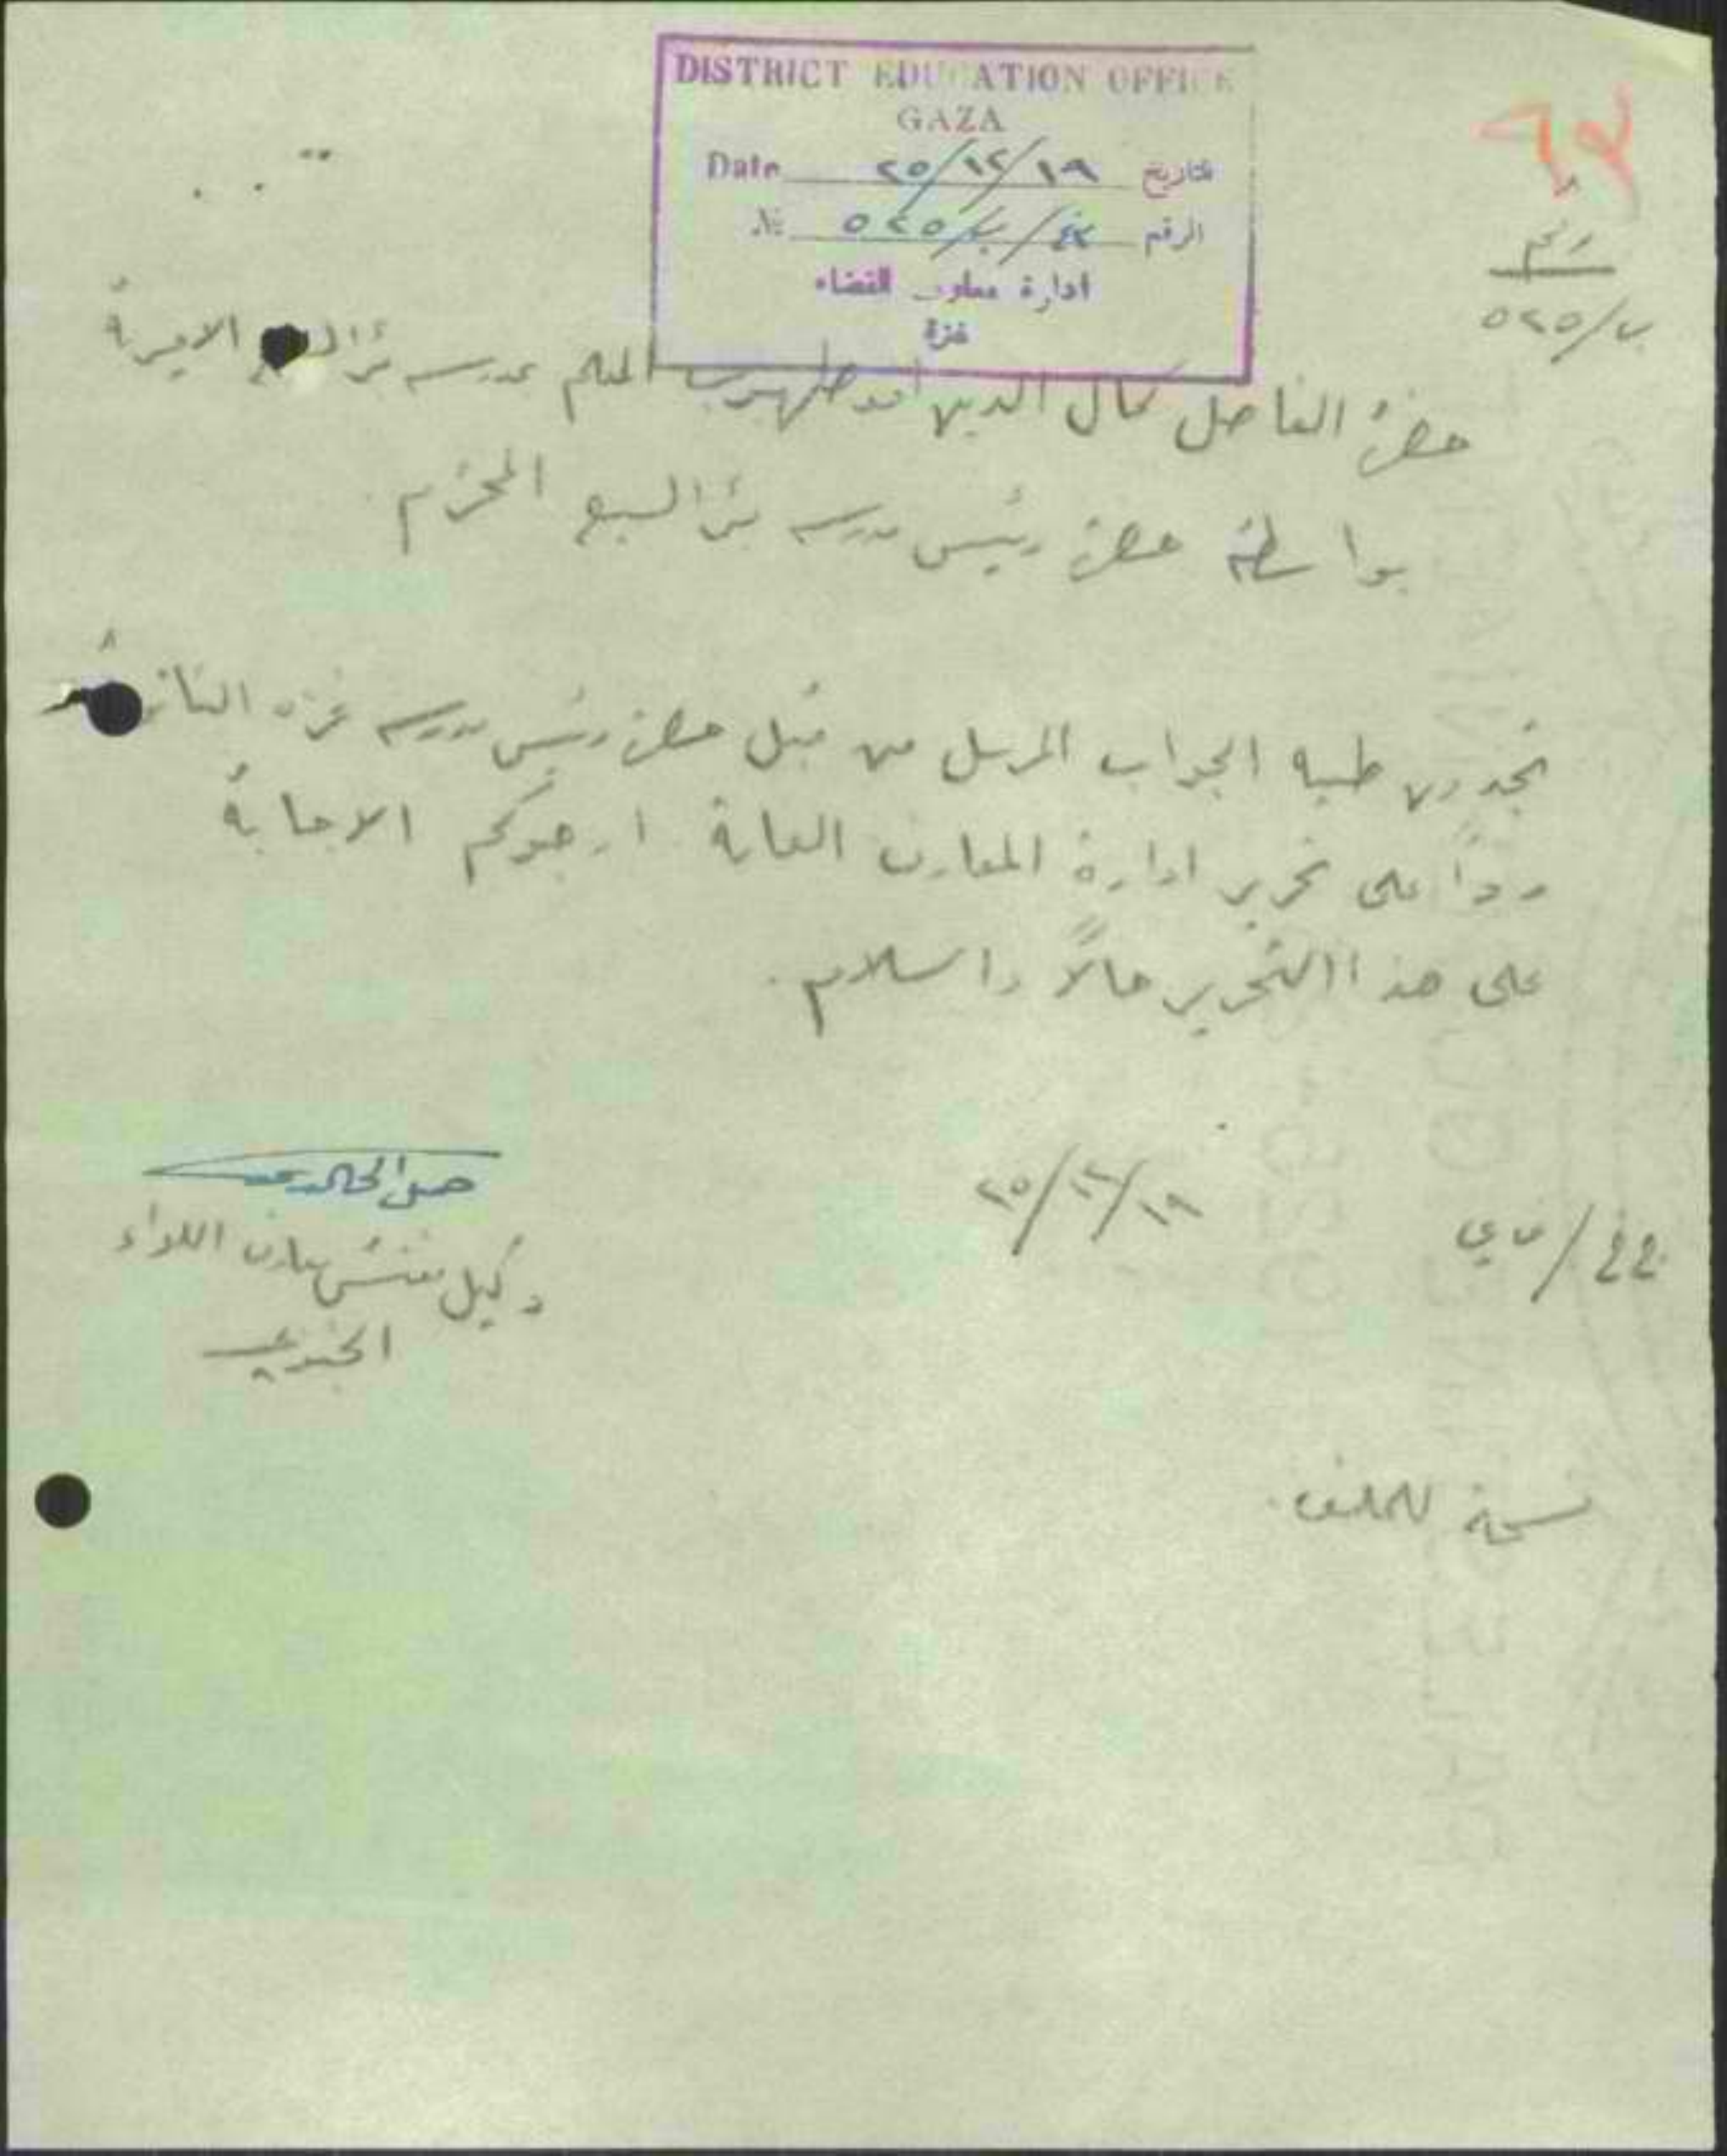 DISTRICT EDUCATION OFFICE
GAZA
Date ٢٥/١٢/١٩ بتاريخ
№ ٥٢٥/ب/غ الرقم
ادارة معارف القضاء
غزة
٦٢
رقم
ب/٥٢٥
حضرة الفاضل كمال الدين افندي طهبوب المعلم بمدرسة بئر السبع الاميرية
بواسطة حضرة رئيس مدرسة بئر السبع المحترم
تجدون طيه الجواب المرسل من قبل حضرة رئيس مدرسة غزة الثانوية
رداً على تحرير ادارة المعارف العامة ارجوكم الاجابة
على هذا التحرير حالاً والسلام.
٢٥/١٢/١٩
وكيل مفتش معارف اللواء
الجنوبي
نسخة للملف.